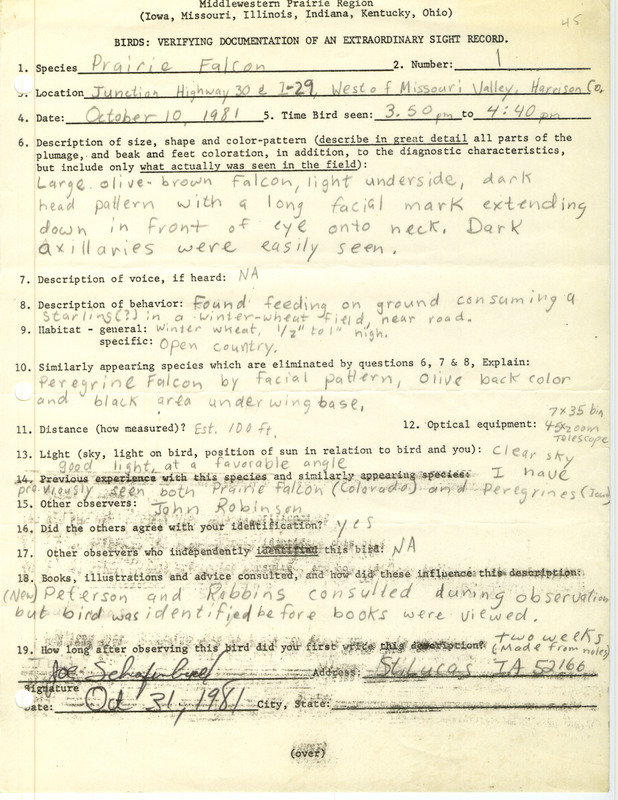 Middlewestern Prairie Region
(Iowa, Missouri, Illinois, Indiana, Kentucky, Ohio)
45
BIRDS: VERIFYING DOCUMENTATION OF AN EXTRAORDINARY SIGHT RECORD.
1. Species Prairie Falcon 2. Number: 1
3. Location Junction Highway 30 & I-29, West of Missouri Valley, Harrison Co.
4. Date: October 10, 1981 5. Time Bird seen: 3:50 pm to 4:40 pm
6. Description of size, shape and color-pattern (describe in great detail all parts of the
plumage, and beak and feet coloration, in addition, to the diagnostic characteristics,
but include only what actually was seen in the field):
Large olive-brown falcon, light underside, dark
head pattern with a long facial mark extending
down in front of eye onto neck. Dark
axillaries were easily seen.
7. Description of voice, if heard: NA
8. Description of behavior: Found feeding on ground consuming a
Starling(?) in a winter-wheat field, near road.
9. Habitat - general: Winter wheat, 1/2" to 1" high.
specific: Open country.
10. Similarly appearing species which are eliminated by questions 6, 7 & 8, Explain:
Peregrine Falcon by facial pattern, Olive back color
and black area under wing base.
7x35 bin
11. Distance (how measured)? Est. 100 ft. 12. Optical equipment: 45x zoom
Telescope
13. Light (sky, light on bird, position of sun in relation to bird and you): Clear sky
good light, at a favorable angle
14. Previous experience with this species and similarly appearing species: I have
previously seen both Prairie Falcon (Colorado) and Peregrines (Iowa)
15. Other observers: John Robinson
16. Did the others agree with your identification? yes
17. Other observers who independently identified this bird: NA
18. Books, illustrations and advice consulted, and how did these influence this description:
(New) Peterson and Robbins consulted during observation
but bird was identified before books were viewed.
19. How long after observing this bird did you first write this description? two weeks
(Made from notes)
Joe Schaufenbuel Address: St. Lucas IA 52166
Signature
Date: Oct 31, 1981 City, State:
(over)